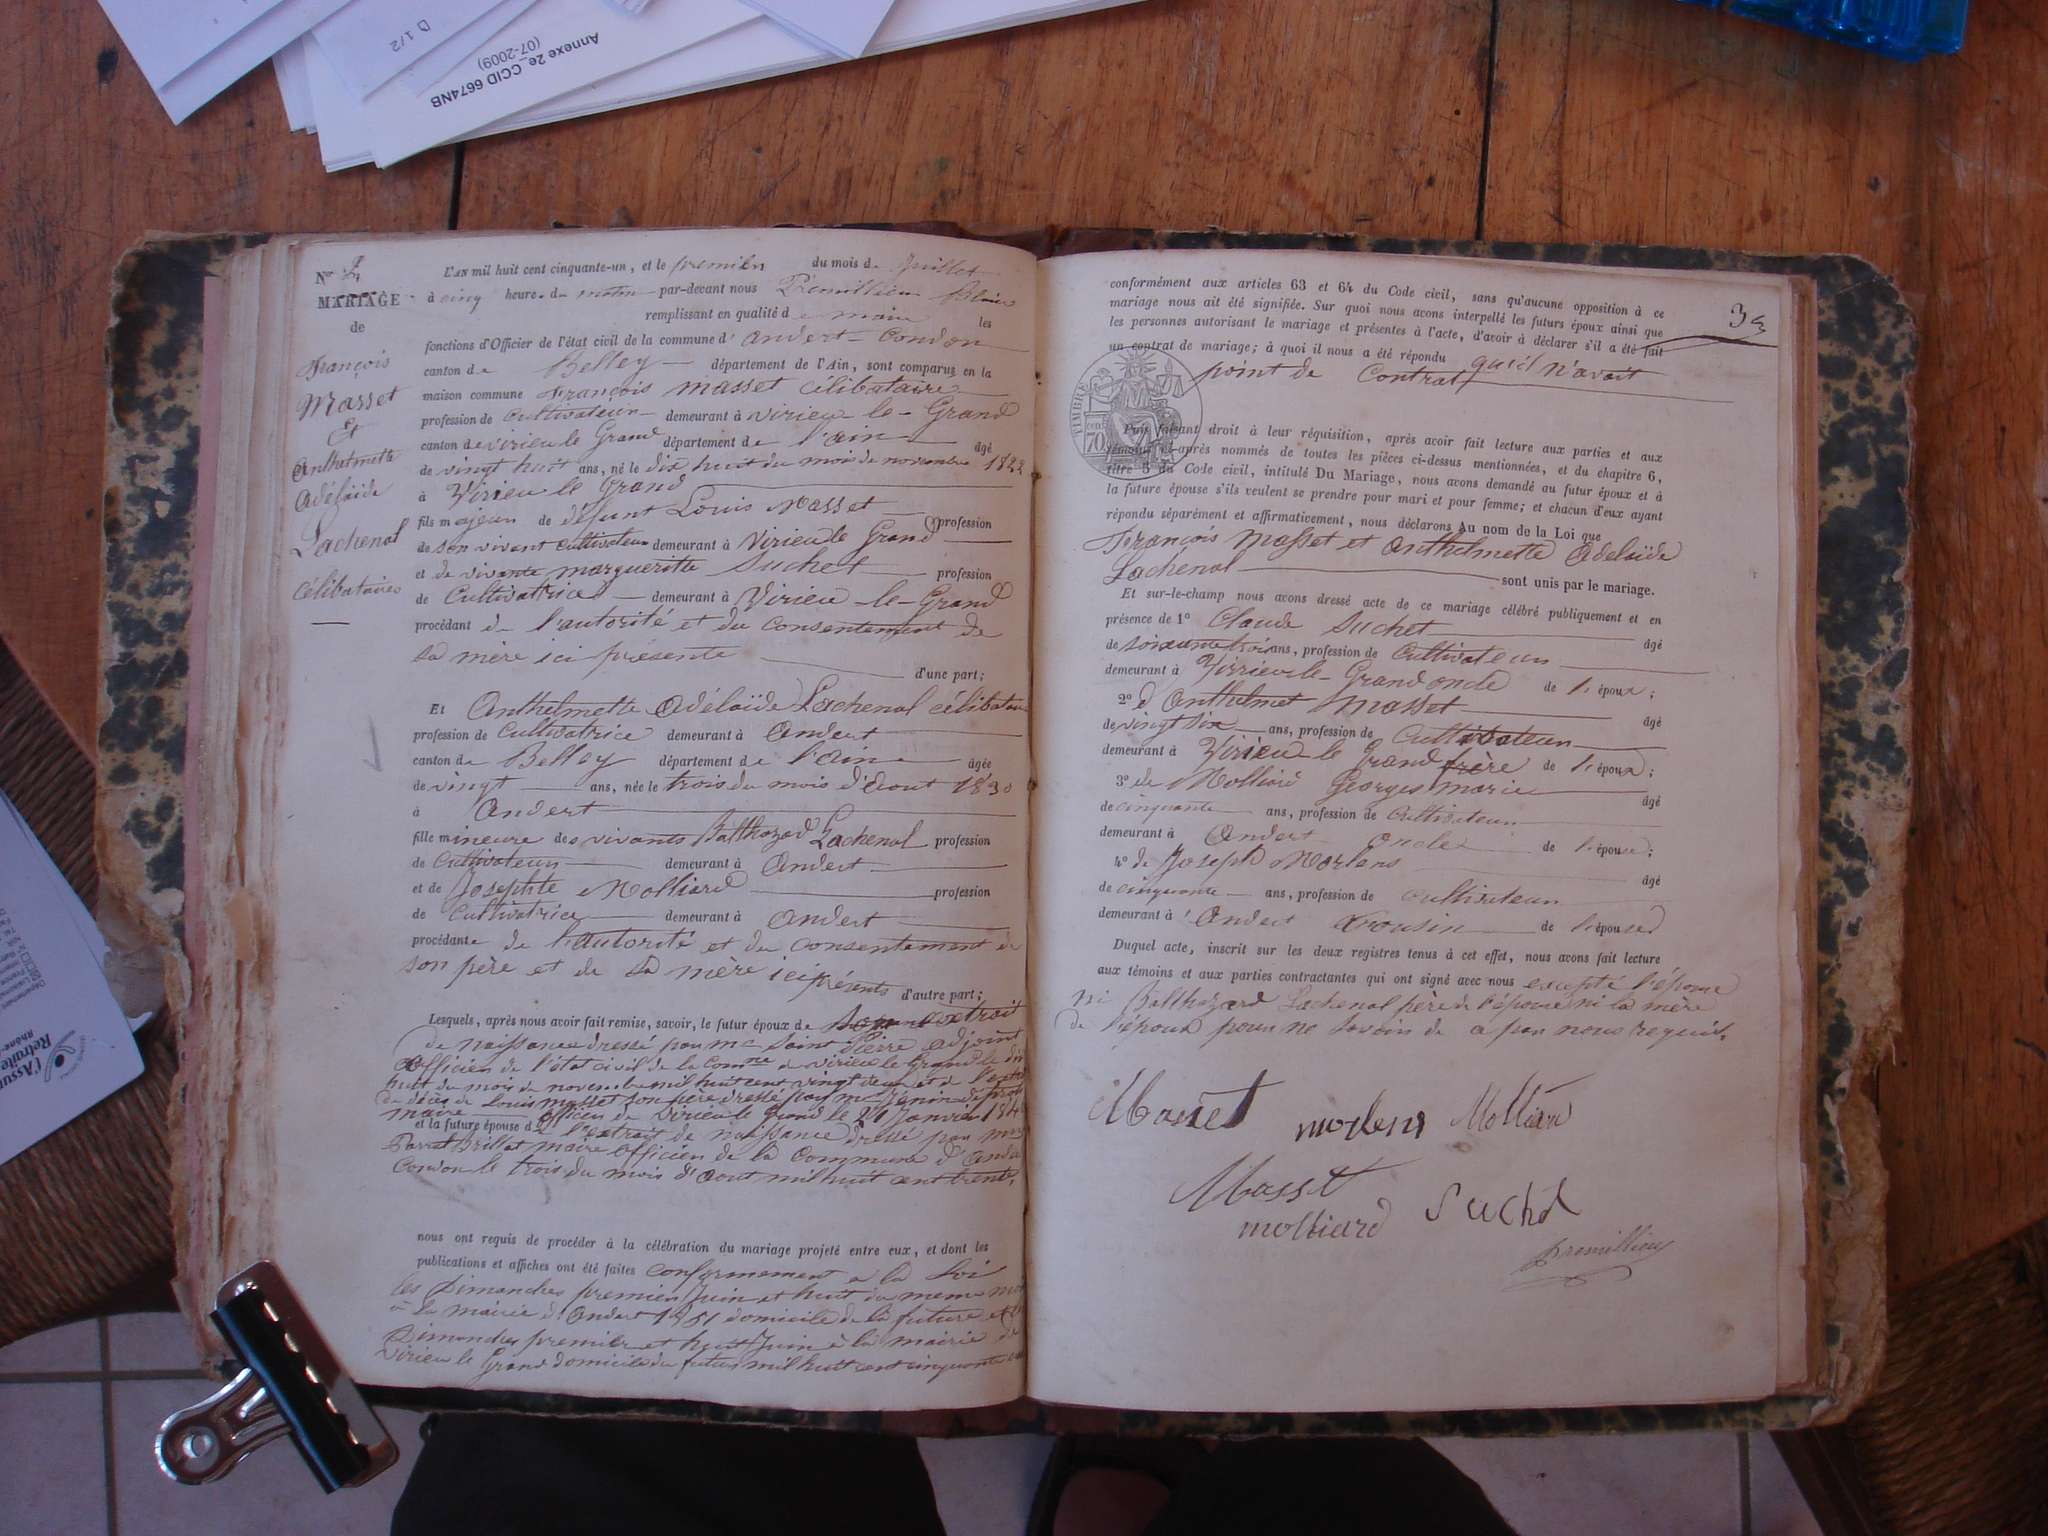 D 1/2
Annexe 2e_CCID 6674NB
(07-2009)
N°
MARIAGE
de
François
Masset
Et
Anthelmette
Adélaïde
Lachenal
Célibataires
L'AN mil huit cent cinquante-un, et le premier du mois de Juillet
à cinq heure du matin par-devant nous Premillieu
remplissant en qualité de maire les
fonctions d'Officier de l'état civil de la commune d'Andert-Condon
canton de Belley département de l'Ain, sont comparus en la
maison commune François Masset célibataire
profession de Cultivateur demeurant à Virieu-le-Grand
canton de Virieu le Grand département de l'ain âgé
de vingt huit ans, né le dix huit du mois de novembre 1822
à Virieu le Grand
fils majeur de défunt Louis Masset profession
de son vivant cultivateur demeurant à Virieu le Grand
et de vivante marguerite Suchet profession
de Cultivatrice demeurant à Virieu-le-Grand
procédant de l'autorité et du consentement de
sa mère ici présente
d'une part;
Et Anthelmette Adélaïde Lachenal célibataire
profession de Cultivatrice demeurant à Andert
canton de Belley département de l'ain âgée
de vingt ans, née le trois du mois d'Aout 1830
à Andert
fille mineure des vivants Balthazard Lachenal profession
de Cultivateur demeurant à Andert
et de Josephte Molliard profession
de Cultivatrice demeurant à Andert
procédante de l'autorité et du consentement de
son père et de sa mère ici présents d'autre part;
Lesquels, après nous avoir fait remise, savoir, le futur époux de extrait
de naissance dressé par mr Saint Pierre adjoint
officier de l'état civil de la Comne de Virieu le Grand le dix
huit du mois de novembre mil huit cent vingt deux et de l'extrait
de décès de Louis Masset son père dressé par mr
maire officier de Virieu le Grand le 21 Janvier
et la future épouse de l'extrait de naissance dressé par mr
Parrat Brillat maire officier de la Commune d'Andert
Condon le trois du mois d'Aout mil huit cent trente,
nous ont requis de procéder à la célébration du mariage projeté entre eux, et dont les
publications et affiches ont été faites conformement a la Loi
les Dimanches premier Juin et huit du meme mois
à la mairie d'Andert 1851 domicile de la future et les
Dimanches premier et huit Juin à la mairie de
Virieu le Grand domicile du futur mil huit cent cinquante un
3
conformément aux articles 63 et 64 du Code civil, sans qu'aucune opposition à ce
mariage nous ait été signifiée. Sur quoi nous avons interpellé les futurs époux ainsi que
les personnes autorisant le mariage et présentes à l'acte, d'avoir à déclarer s'il a été fait
un contrat de mariage; à quoi il nous a été répondu qu'il n'avait
point de Contrat
TIMBRE
70
Puis faisant droit à leur réquisition, après avoir fait lecture aux parties et aux
témoins ci-après nommés de toutes les pièces ci-dessus mentionnées, et du chapitre 6,
titre 5 du Code civil, intitulé Du Mariage, nous avons demandé au futur époux et à
la future épouse s'ils veulent se prendre pour mari et pour femme; et chacun d'eux ayant
répondu séparément et affirmativement, nous déclarons Au nom de la Loi que
François Masset et Anthelmette Adelaïde
Lachenal sont unis par le mariage.
Et sur-le-champ nous avons dressé acte de ce mariage célébré publiquement et en
présence de 1° Claude Suchet âgé
de soixante trois ans, profession de Cultivateur
demeurant à Virieu-le-Grand oncle de l'époux;
2° d'Anthelmet Masset âgé
de vingt six ans, profession de Cultivateur
demeurant à Virieu le Grand frère de l'époux;
3° de Molliard Georges marie âgé
de cinquante ans, profession de Cultivateur
demeurant à Andert oncle de l'épouse;
4° de Joseph Morlens âgé
de cinquante ans, profession de cultivateur
demeurant à Andert Cousin de l'épouse
Duquel acte, inscrit sur les deux registres tenus à cet effet, nous avons fait lecture
aux témoins et aux parties contractantes qui ont signé avec nous excepté l'épouse
ni Balthazard Lachenal père de l'épouse ni la mère
de l'époux pour ne savoir de a par nous requit.
Masset morlens Molliard
Masset
molliard Suchet
premillieu